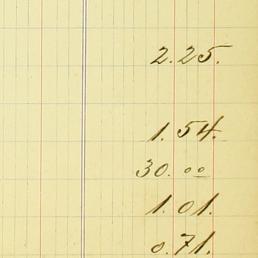 2.25.
1.54.
30.00
1.01.
0.71.